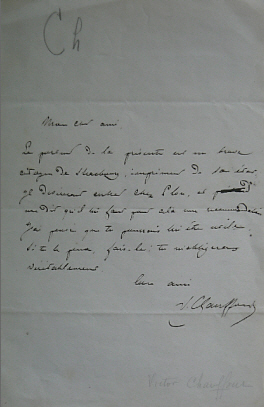 Ch
Mon cher ami.
Le porteur de la présente est un brave
citoyen de Strasbourg, imprimeur de son état,
qui désirerait entrer chez Plon, et
me dit qu'il lui faut pour cela une
J'ai pensé que tu pourrais lui être utile.
Si tu le peux, fais-le; tu m'obligeras
véritablement
ami
V. Chauffour
Victor Chauffour